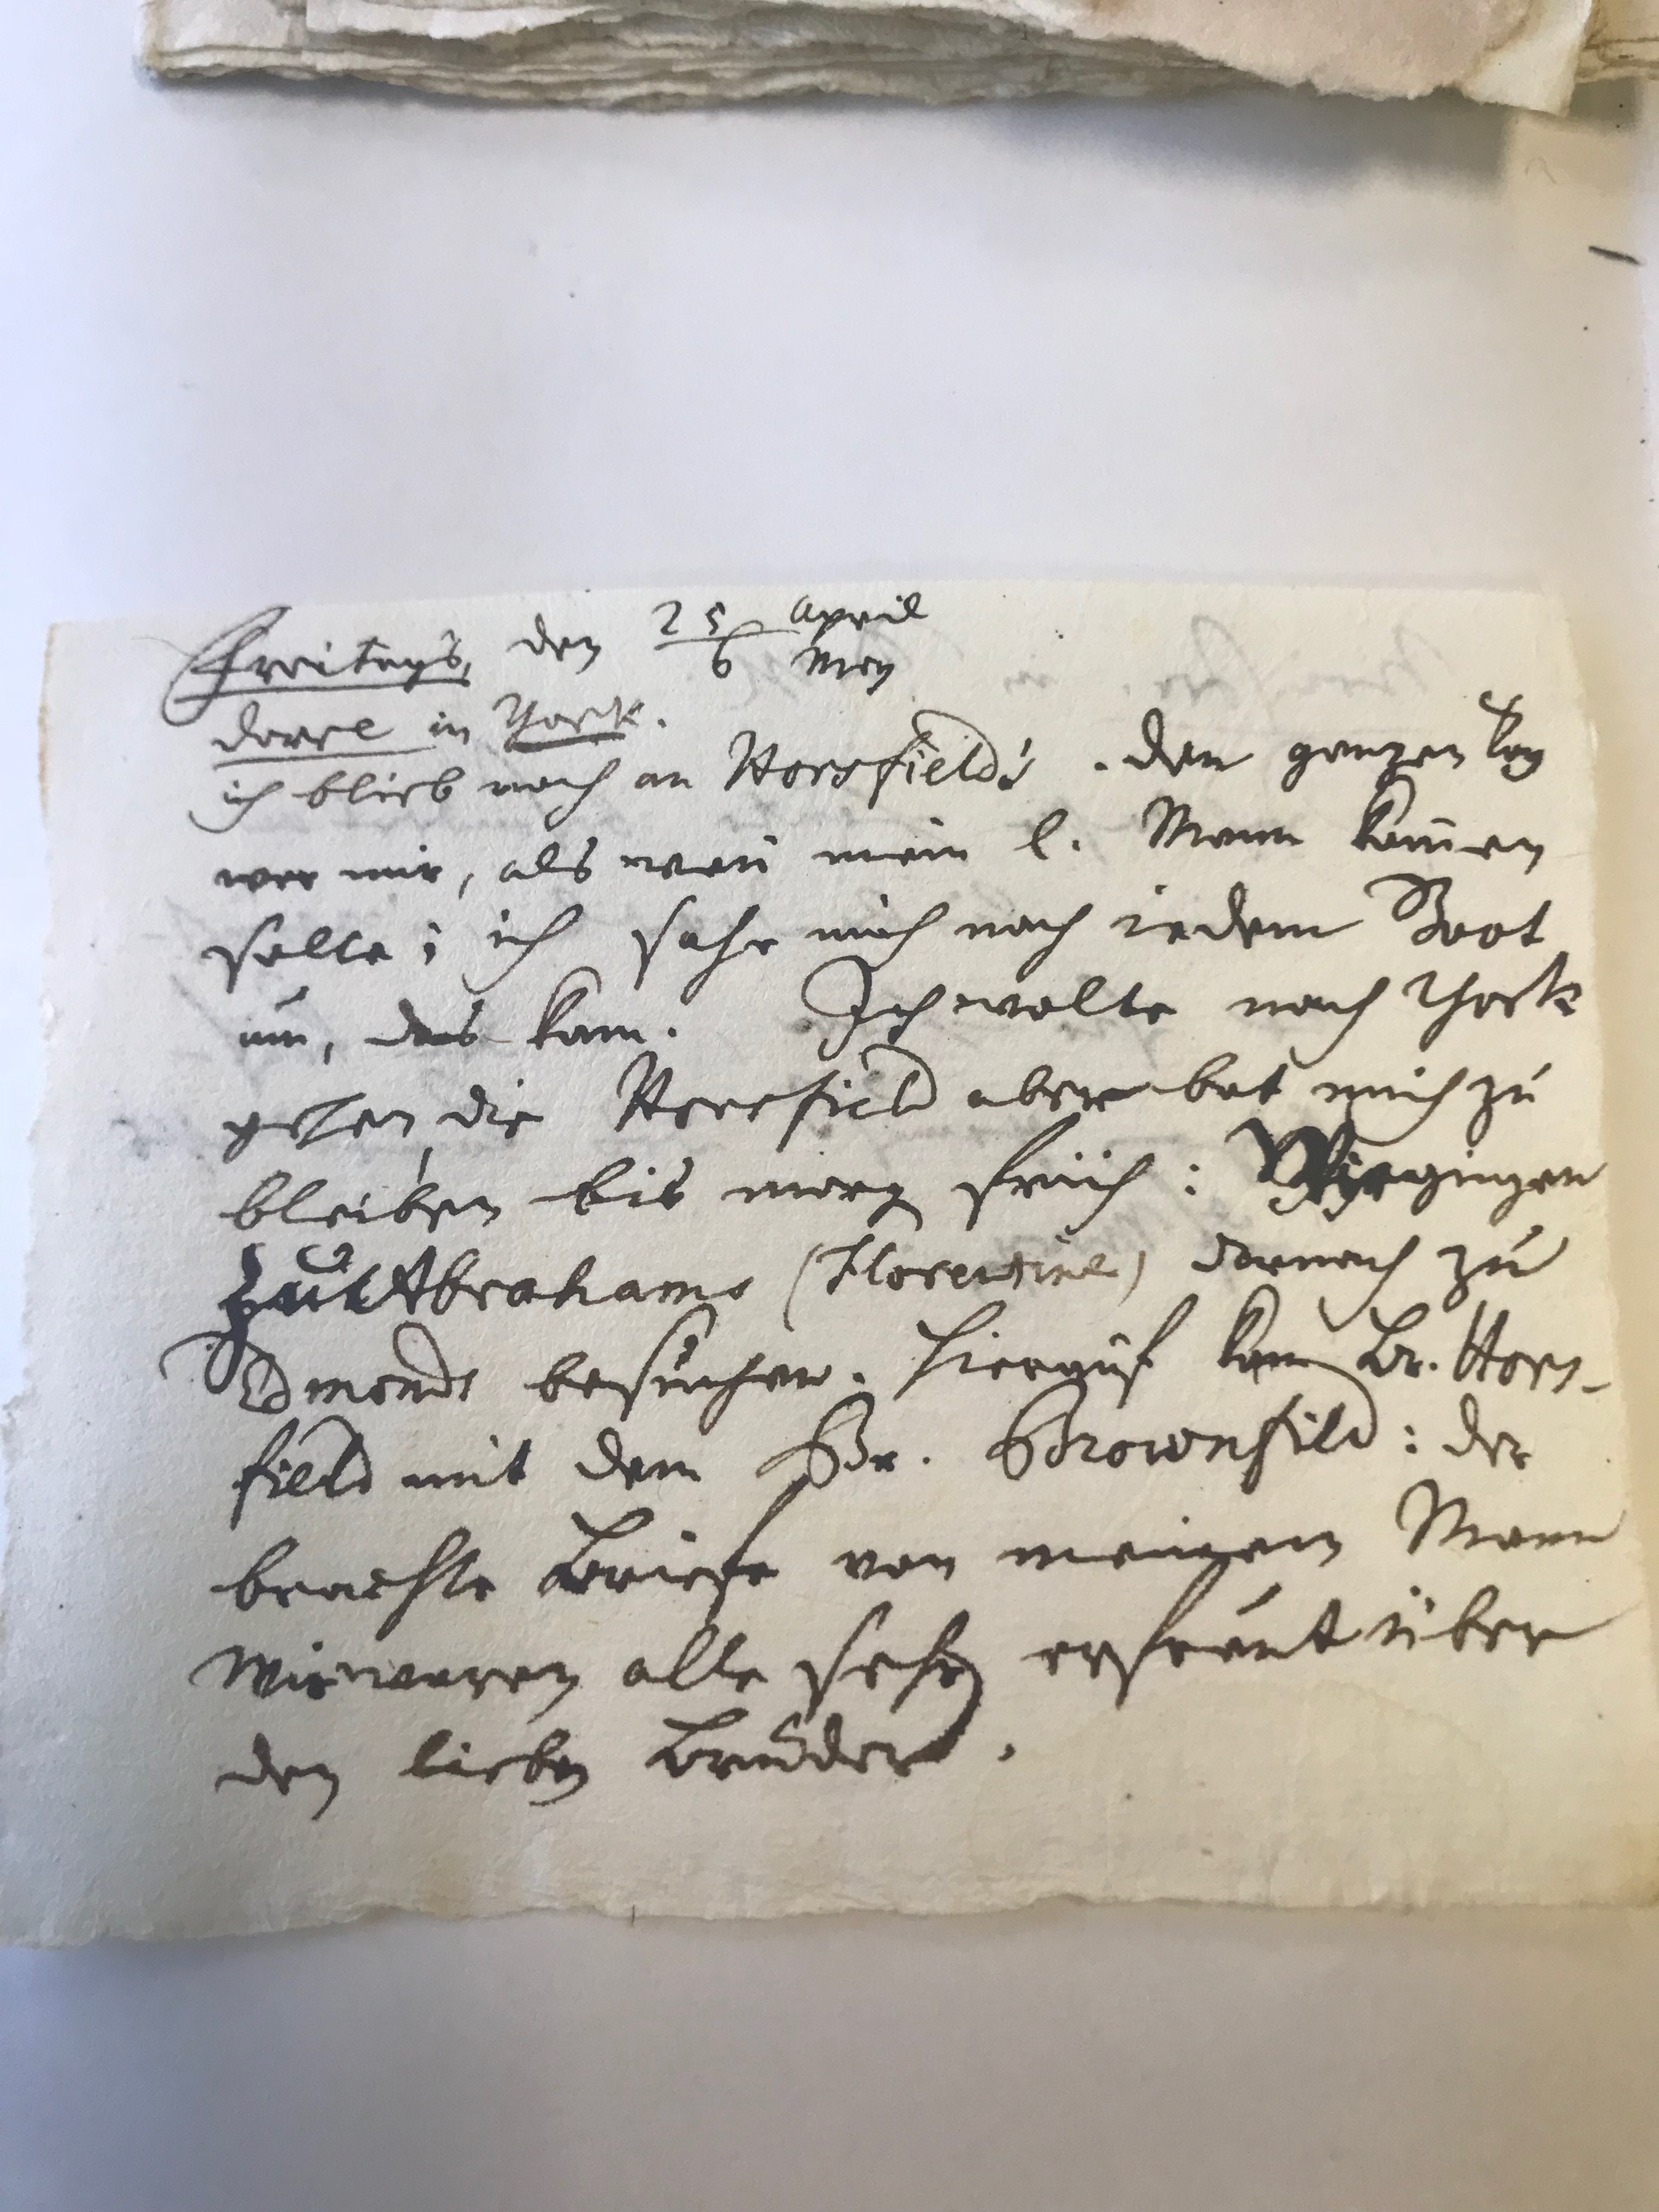 Freitags, den 25 April
6 Mey
dorre in York.
ich blieb noch an Horsfield's. den ganzen Tag
war mir, als wen̄ mein l. Mann kom̄en
solte; ich sahe mich nach iedem Boot
um, das kam. Ich wolte nach York
gehen, die Horsfield aber bat mich zu
bleiben bis morg früh: Wir gingen
zu Abrahams (Florentine) darnach zu
Edmonds besuchen. hierauf kam Br. Hors-
field mit dem Br. Brownfild: der
brachte Briefe von meinem Mann
Wir waren alle sehr erfreut über
den lieben Bruder.